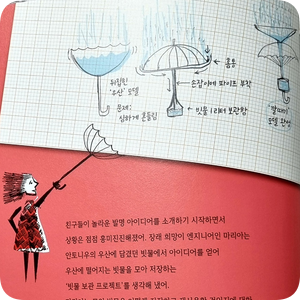 뒤집힌
'우산' 모델
문제:
심하게 흔들림
홈통
손잡이에 파이프 부착
빗물 1리터 보관함
모델 완성
친구들이 놀라운 발명 아이디어를 소개하기 시작하면서
상황은 점점 흥미진진해졌어. 장래 희망이 엔지니어인 마리아는
안토니우의 우산에 담겼던 빗물에서 아이디어를 얻어
우산에 떨어지는 빗물을 모아 저장하는
'빗물 보관 프로젝트'를 생각해 냈어.